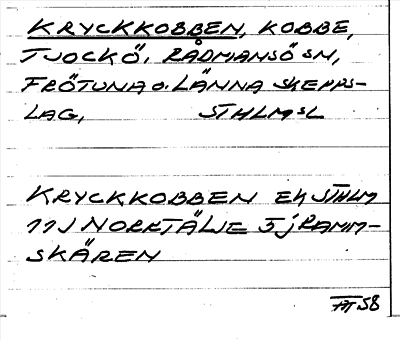 KRYCKKOBBEN, KOBBE,
TJOCKÖ, RÅDMANSÖ SN,
FRÖTUNA O. LÄNNA SKEPPS-
LAG, STHLMSL
KRYCKKOBBEN EK STHLM
11J NORRTÄLJE 5j RAMM-
SKÄREN
58